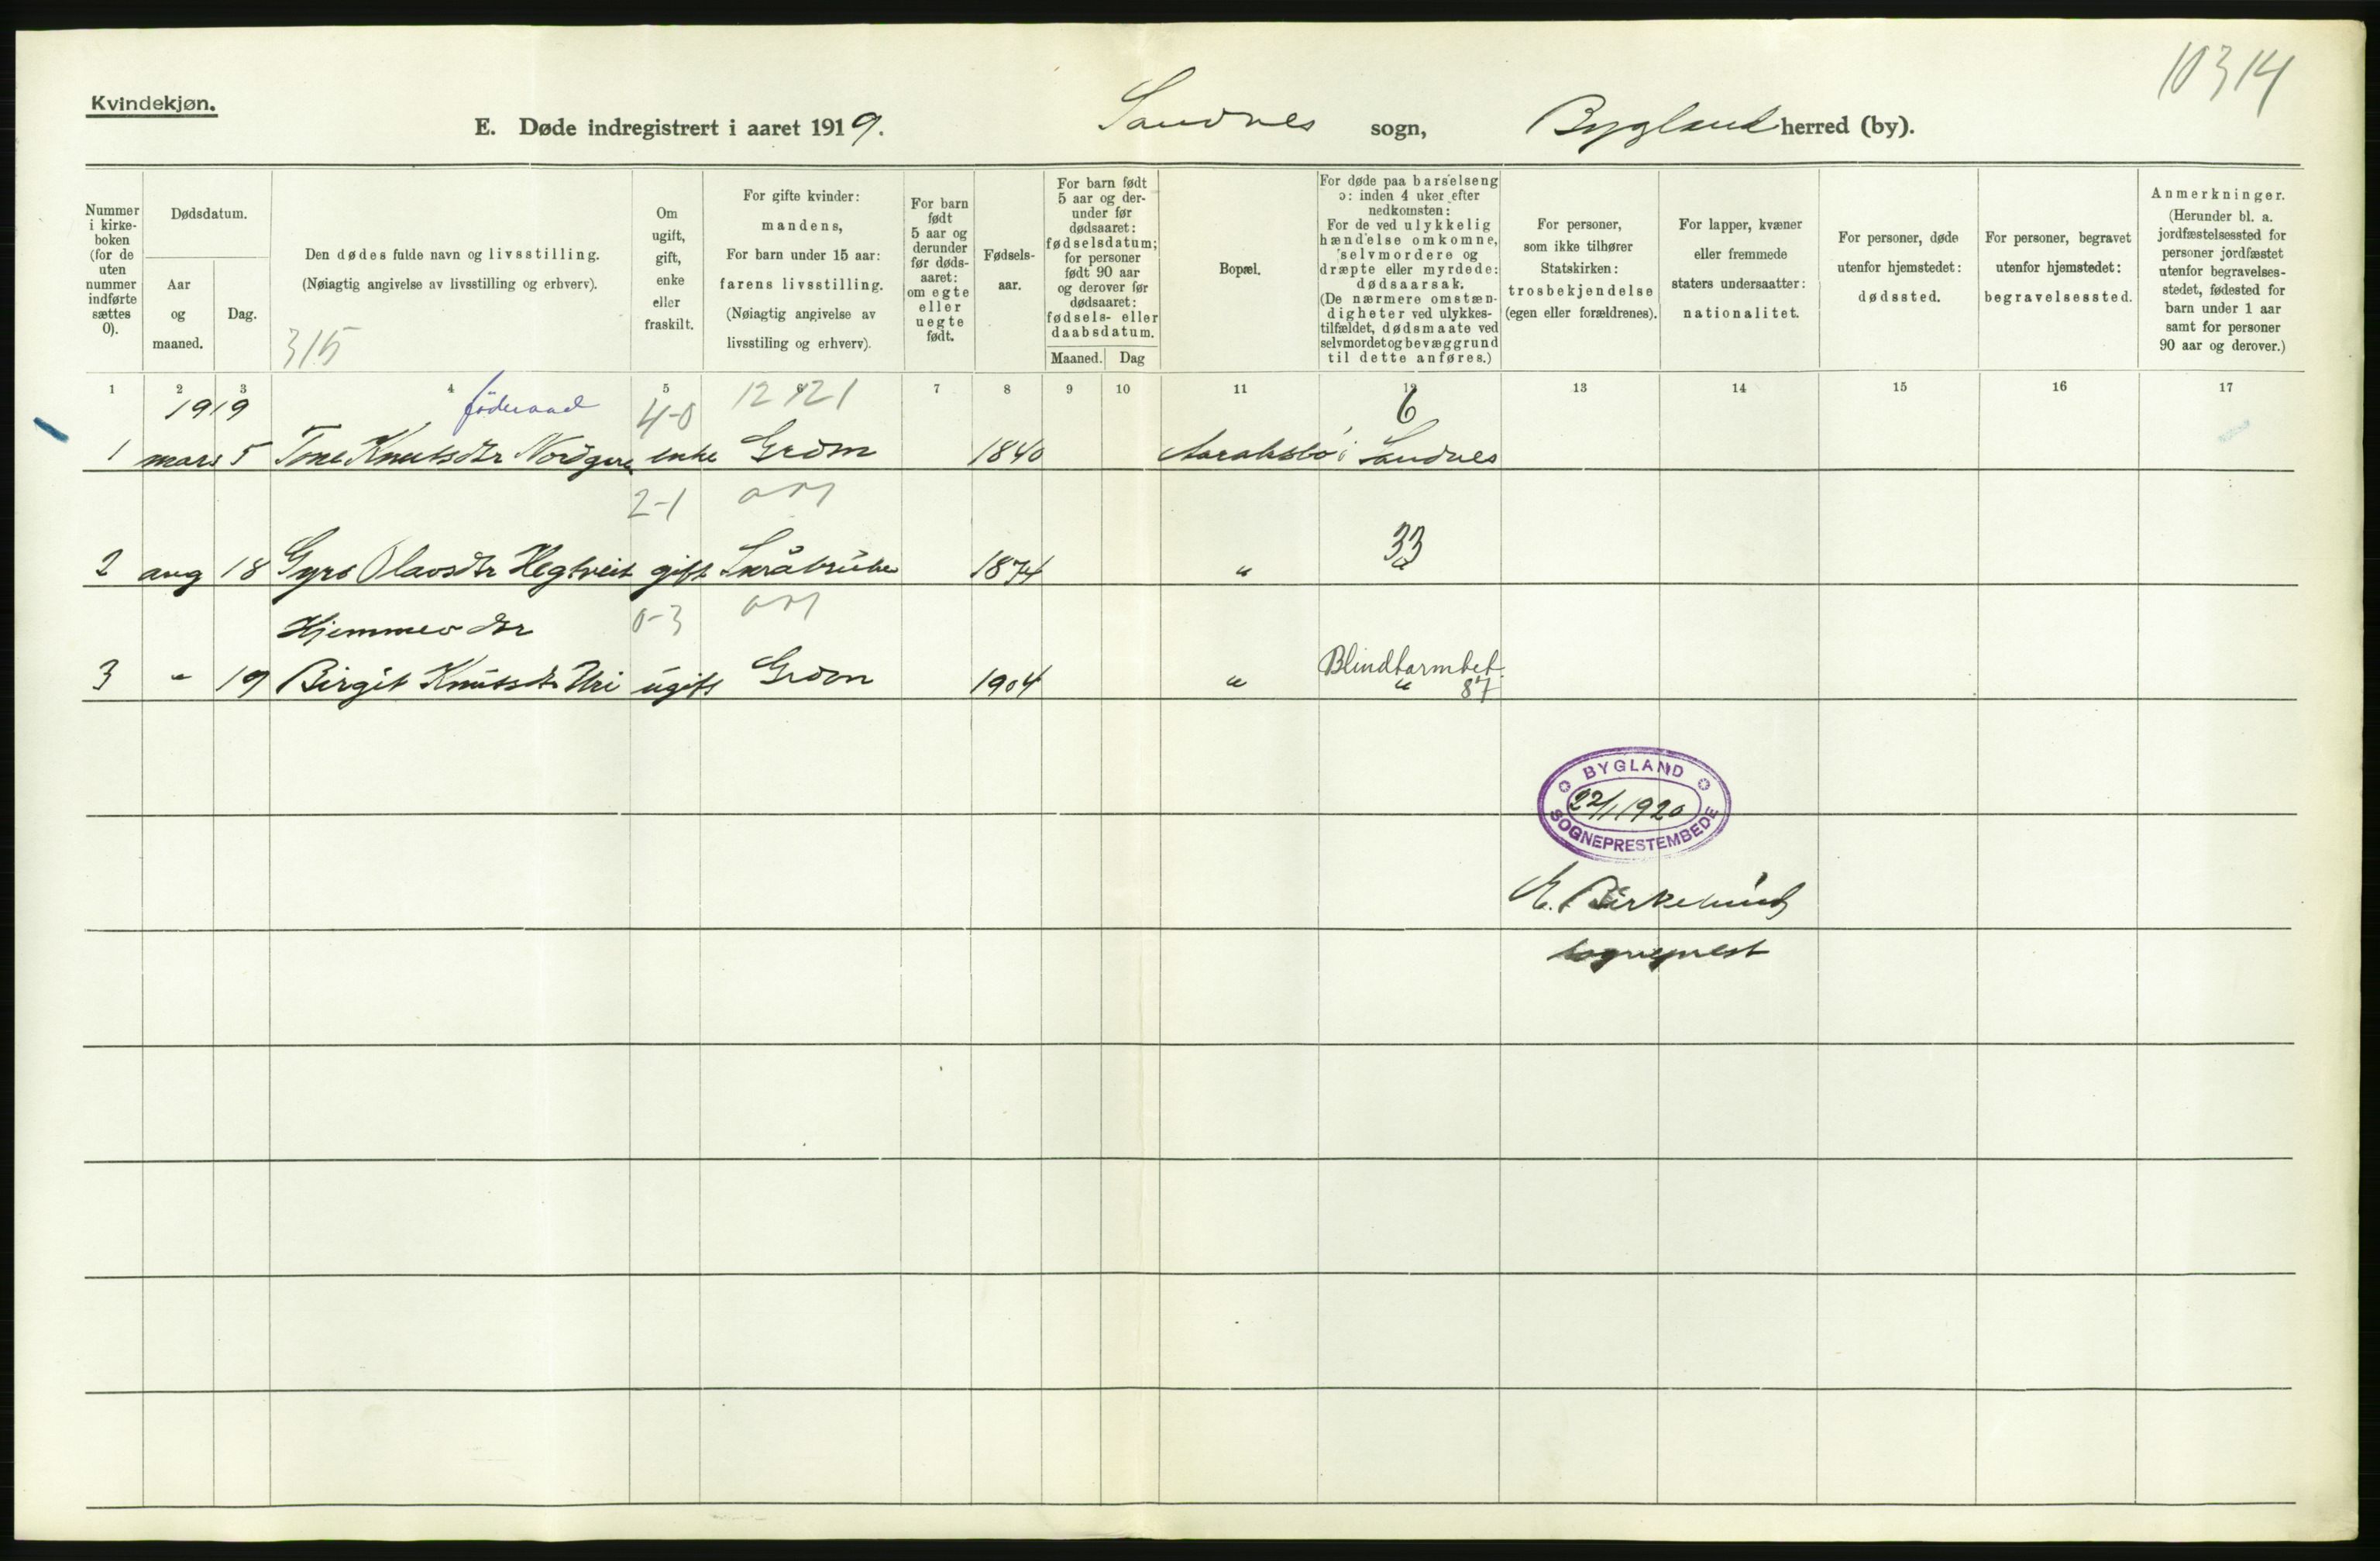 10314
Kvindekjøn.
E. Døde indregistrert i aaret 1919. Sandnes sogn, Bygland herred (by).
Nummer i kirkeboken (for de uten nummer indførte sættes 0).
Dødsdatum.
Aar og maaned.
Dag.
Den dødes fulde navn og livsstilling.
(Nøiagtig angivelse av livsstilling og erhverv).
315
Om ugift, gift, enke eller fraskilt.
For gifte kvinder: mandens,
For barn under 15 aar: farens livsstilling.
(Nøiagtig angivelse av livsstiling og erhverv).
For barn født 5 aar og derunder før dødsaaret: om egte eller uegte født.
Fødselsaar.
For barn født 5 aar og derunder før dødsaaret: fødselsdatum; for personer født 90 aar og derover før dødsaaret: fødsels- eller daabsdatum.
Maaned. Dag
Bopæl.
For døde paa barselseng ɔ: inden 4 uker efter nedkomsten:
For de ved ulykkelig hændelse omkomne, selvmordere og dræpte eller myrdede: dødsaarsak.
(De nærmere omstændigheter ved ulykkestilfældet, dødsmaate ved selvmordet og bevæggrund til dette anføres.)
For personer, som ikke tilhører Statskirken: trosbekjendelse (egen eller forældrenes).
For lapper, kvæner eller fremmede staters undersaatter: nationalitet.
For personer, døde utenfor hjemstedet: dødssted.
For personer, begravet utenfor hjemstedet: begravelsessted.
Anmerkninger.
(Herunder bl. a. jordfæstelsessted for personer jordfæstet utenfor begravelsesstedet, fødested for barn under 1 aar samt for personer 90 aar og derover.)
1 2 3 4 5 6 7 8 9 10 11 12 13 14 15 16 17
1919 føderaad 4-0 12 121 6
1 mars 5 Tone Knutsdtr Nordgare enke Grdm 1840 Aarakbø i Sandnes
2-1
33
2 aug 18 Gyro Olavsdtr Hegtveit gift 1874 "
Hjemmev dtr 0-3
Blindtarmbet.
3 " 19 Birgit Knutsdtr Uri ugift Grdm 1904 " " 87
BYGLAND
22/1 1920
SOGNEPRESTEMBEDE
Birkelund
sogneprest